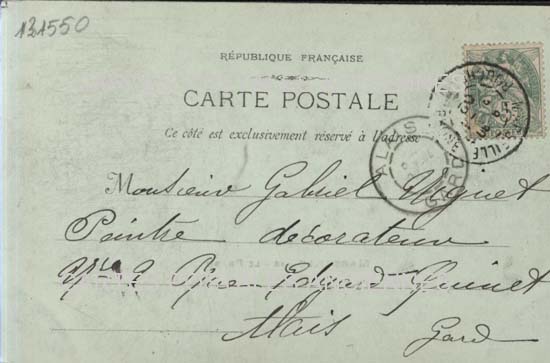 131550
RÉPUBLIQUE FRANÇAISE
CARTE POSTALE
Ce côté est exclusivement réservé à l'adresse
ALAIS
GARD
Monsieur Gabriel Miguet
Peintre décorateur
Rue Edgard Quinet
Alais Gard